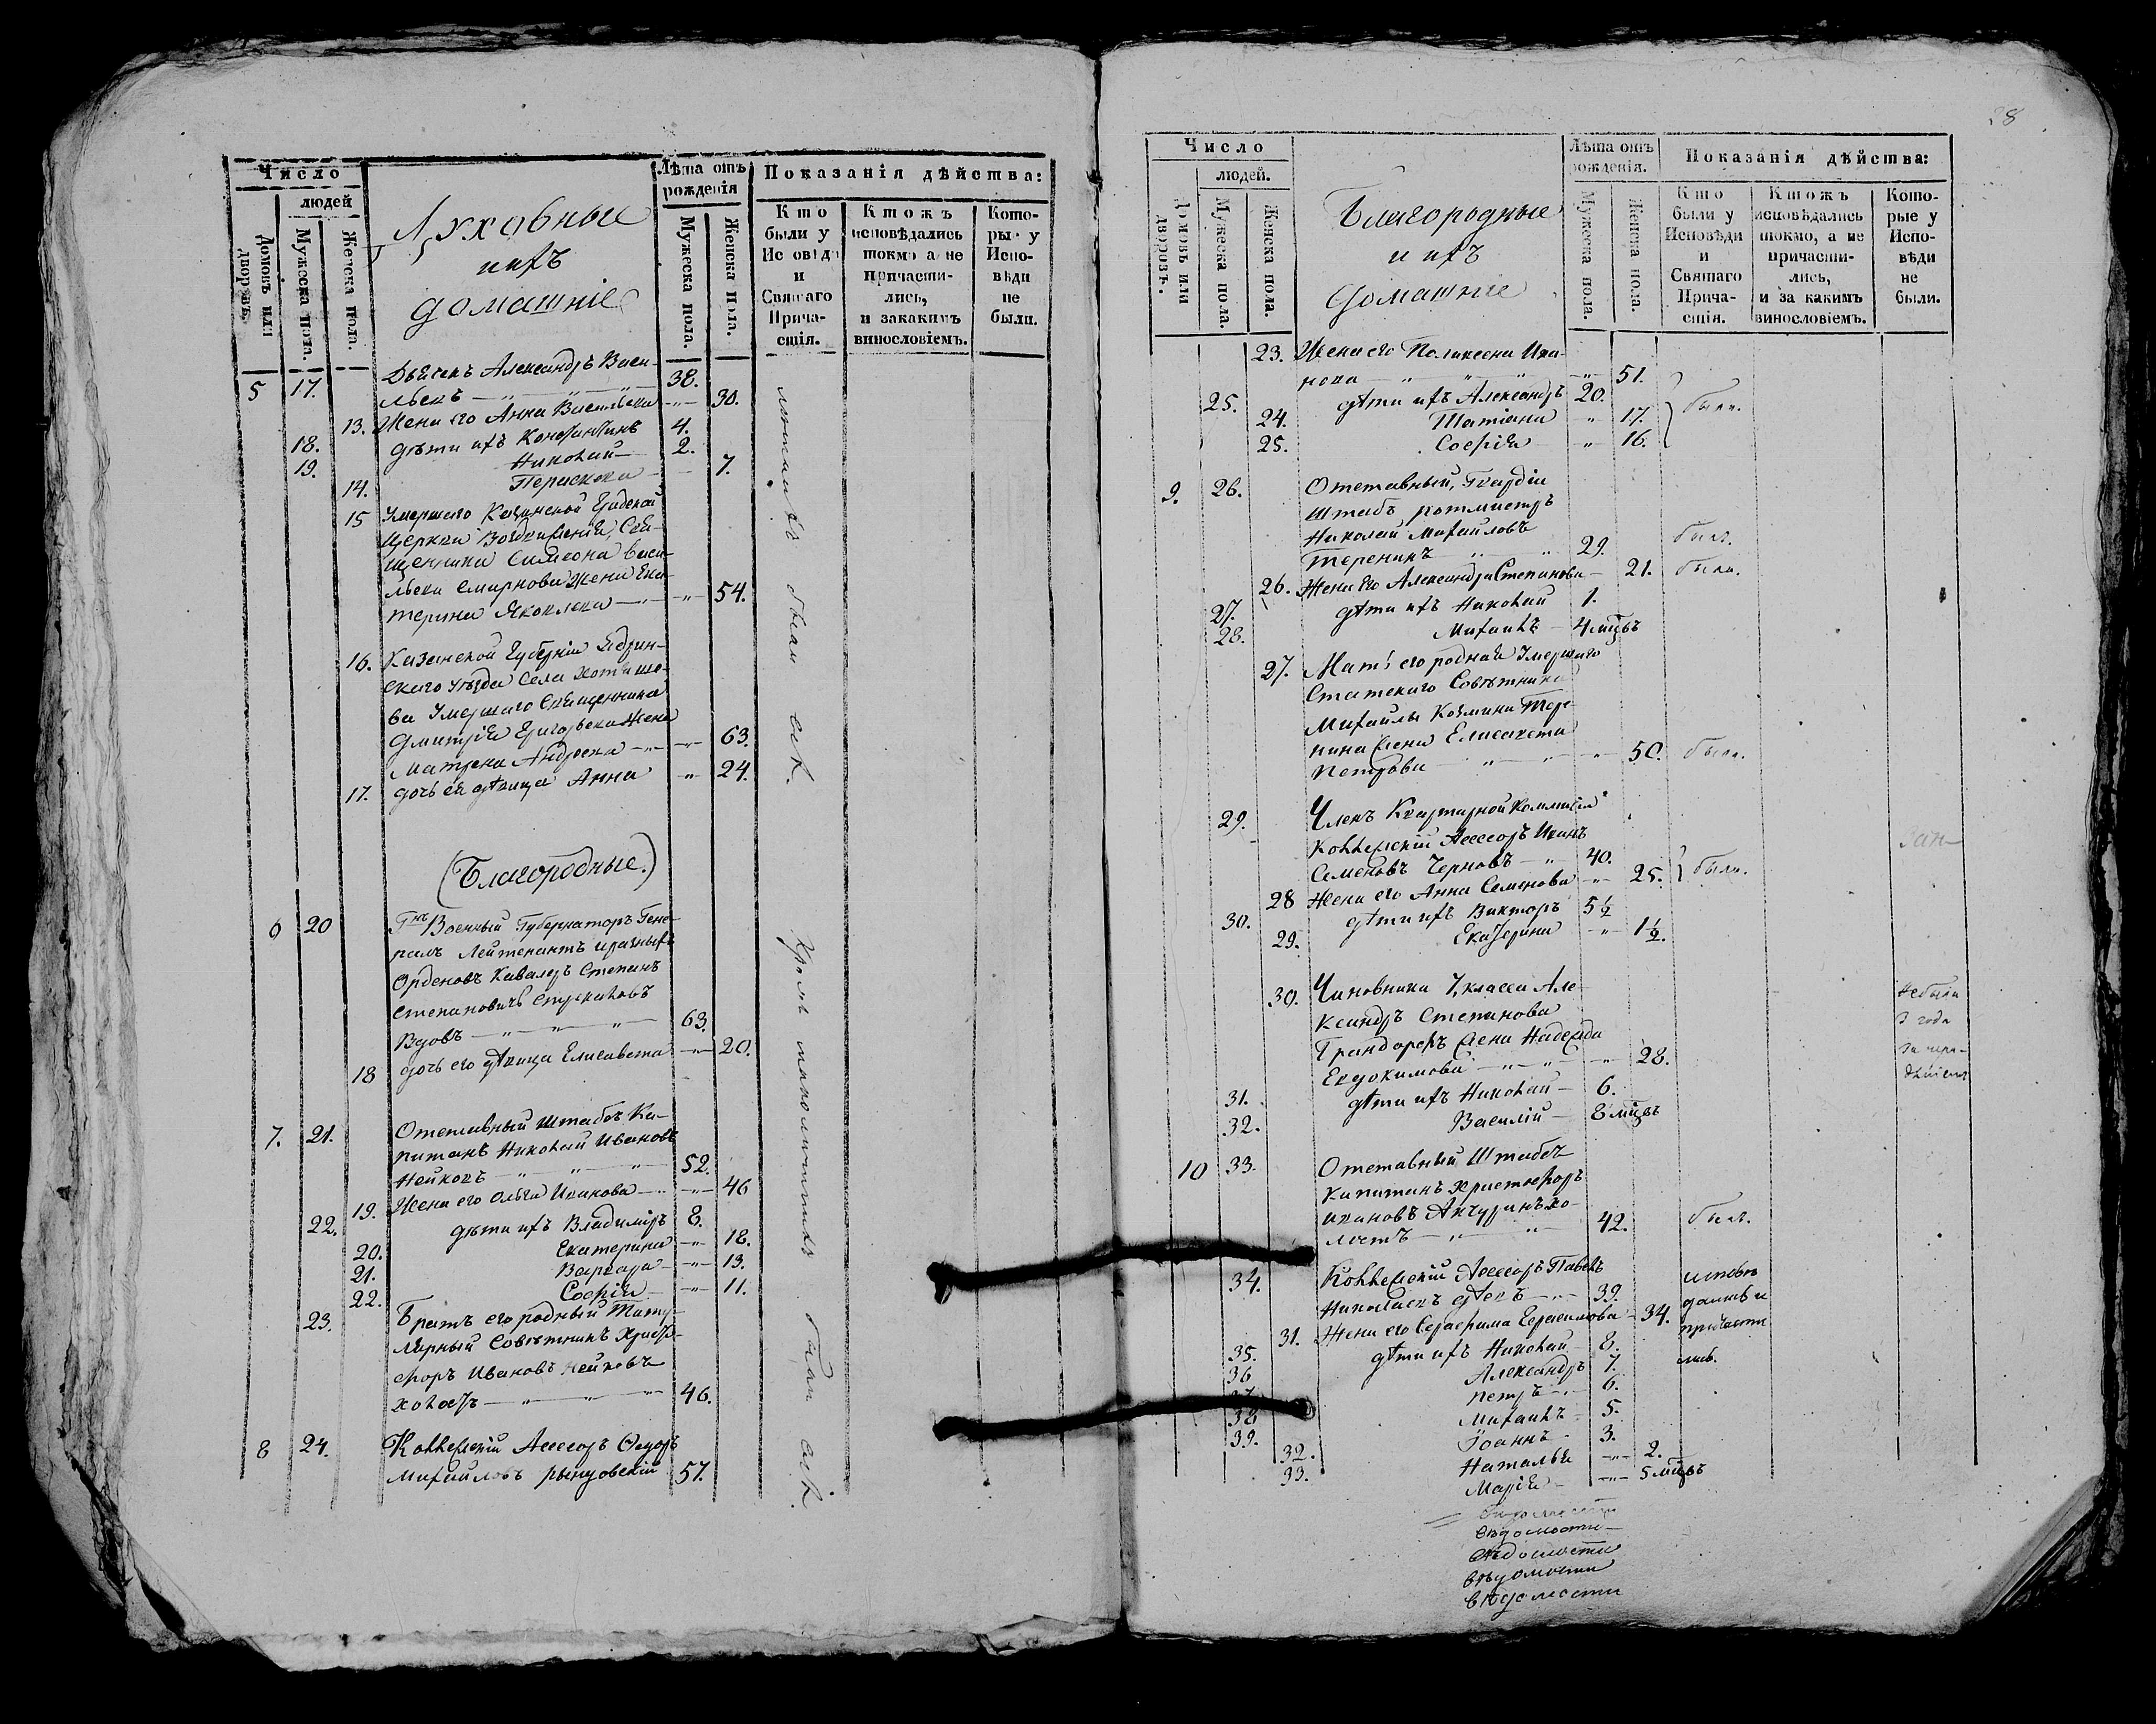 Число
людей
Домовъ или дворовъ.
Мужеска пола.
Женска пола.
Духовные
ихъ
домашніе
Лѣта отъ рожденія
Мужеска пола.
Женска пола.
Показанія дѣйства:
Кто были у Исповѣди и Святаго Прича- стія.
Ктожъ исповѣдались токмо а не причасти- лись, и закакимъ винословіемъ.
Кото- рые у Испо- вѣди не были.
5 17. Дьячекъ Александръ Васи-
льевъ 38.
13. Жена его Анна Васильева 30.
18. дѣти ихъ Константинъ 4.
19. Николай 2.
14. Парасκева 7.
15 Умершаго Казанской Градской
Церкви Воздвиженія, Свя-
щенника Симеона Васи-
льева Смирнова Жена Ека-
терина Яковлева 54.
16. Казанской Губерніи Ядрин-
скаго уѣзда Села
ва Умершаго Священника
Дмитрія Григорьева Жена
Матрена Андреева 63.
17. дочь ея дѣвица Анна 24.
были всѣ.
(Благородные.)
6 20 Гнъ Военный Губернаторъ Гене-
ралъ Лейтенантъ и разныхъ
Орденовъ Кавалеръ Степанъ
Степановичъ Стрекаловъ
Вдовъ 63.
18 дочь его дѣвица Елисавета 20.
7. 21. Отставный Штабсъ Ка-
питанъ Николай Ивановъ
Нейковъ 52.
19. Жена его Ольга Иванова 46
22. дѣти ихъ Владиміръ 8.
20. Екатерина 18.
21. Варвара 13.
22. Софія 11.
23. Братъ его родный Титу-
лярный Совѣтникъ Христо-
форъ Ивановъ Нейковъ
холостъ 46.
8 24. Коллежскій Ассесоръ Ѳедоръ
Михайловъ Рындовскій 57.
Кромѣ малолѣтныхъ были всѣ.
28
Число
людей.
Домовъ или дворовъ.
Мужеска пола.
Женска пола.
Благородные
и ихъ
домашніе
Лѣта отъ рожденія.
Мужеска пола.
Женска пола.
Показанія дѣйства:
Кто были у Исповѣди и Святаго Прича- стія.
Ктожъ исповѣдались токмо, а не причасти- лись, и за какимъ винословіемъ.
Кото- рые у Испо- вѣди не были.
23. Жена его Поликсена Ива-
нова 51.
25. дѣти ихъ Александръ 20.
24. Татіана 17. были.
25. Софія 16.
9. 26. Отставный, Гвардіи
Штабъ ротмистръ
Николай Михайловъ
Теренинъ 29. былъ.
26. Жена его Александра Степанова 21. была.
27. дѣти ихъ Николай 1.
28. Михаилъ 4 мцъъ
27. Мать его родная Умершаго
Статскаго Совѣтника
Михайлы Козмина Тере-
нина Жена Елисавета
Петрова 50. была.
29. Членъ Квартирной Коммисіи
Коллежскій Ассесоръ Иванъ
Семеновъ Черновъ 40.
28 Жена его Анна Семенова 25. были.
30. дѣти ихъ Викторъ 5 1/2
29. Екатерина 1 1/2.
30. Чиновника 7, класса Але-
ксандра Степанова
Жена Надежда
Евдокимова 28.
не была
3 года
31. дѣти ихъ Николай 6.
32. Василій 8 мцъъ
10 33. Отставный Штабсъ
Капитанъ Христофоръ
Ивановъ Анчуринъ хо-
лостъ 42. былъ.
34. Коллежскій Ассесоръ Павелъ
Николаевъ 39.
31. Жена его Серафима Герасимова 34.
исповѣ
дались и
причасти
лись.
35. дѣти ихъ Николай 8.
36 Александръ 7.
37 Петръ 6.
38 Михаилъ 5.
39. Іоаннъ 3.
32. Наталья 2.
33. Марія 5 мцъъ
вѣдомости
вѣдомости
вѣдомости
вѣдомости